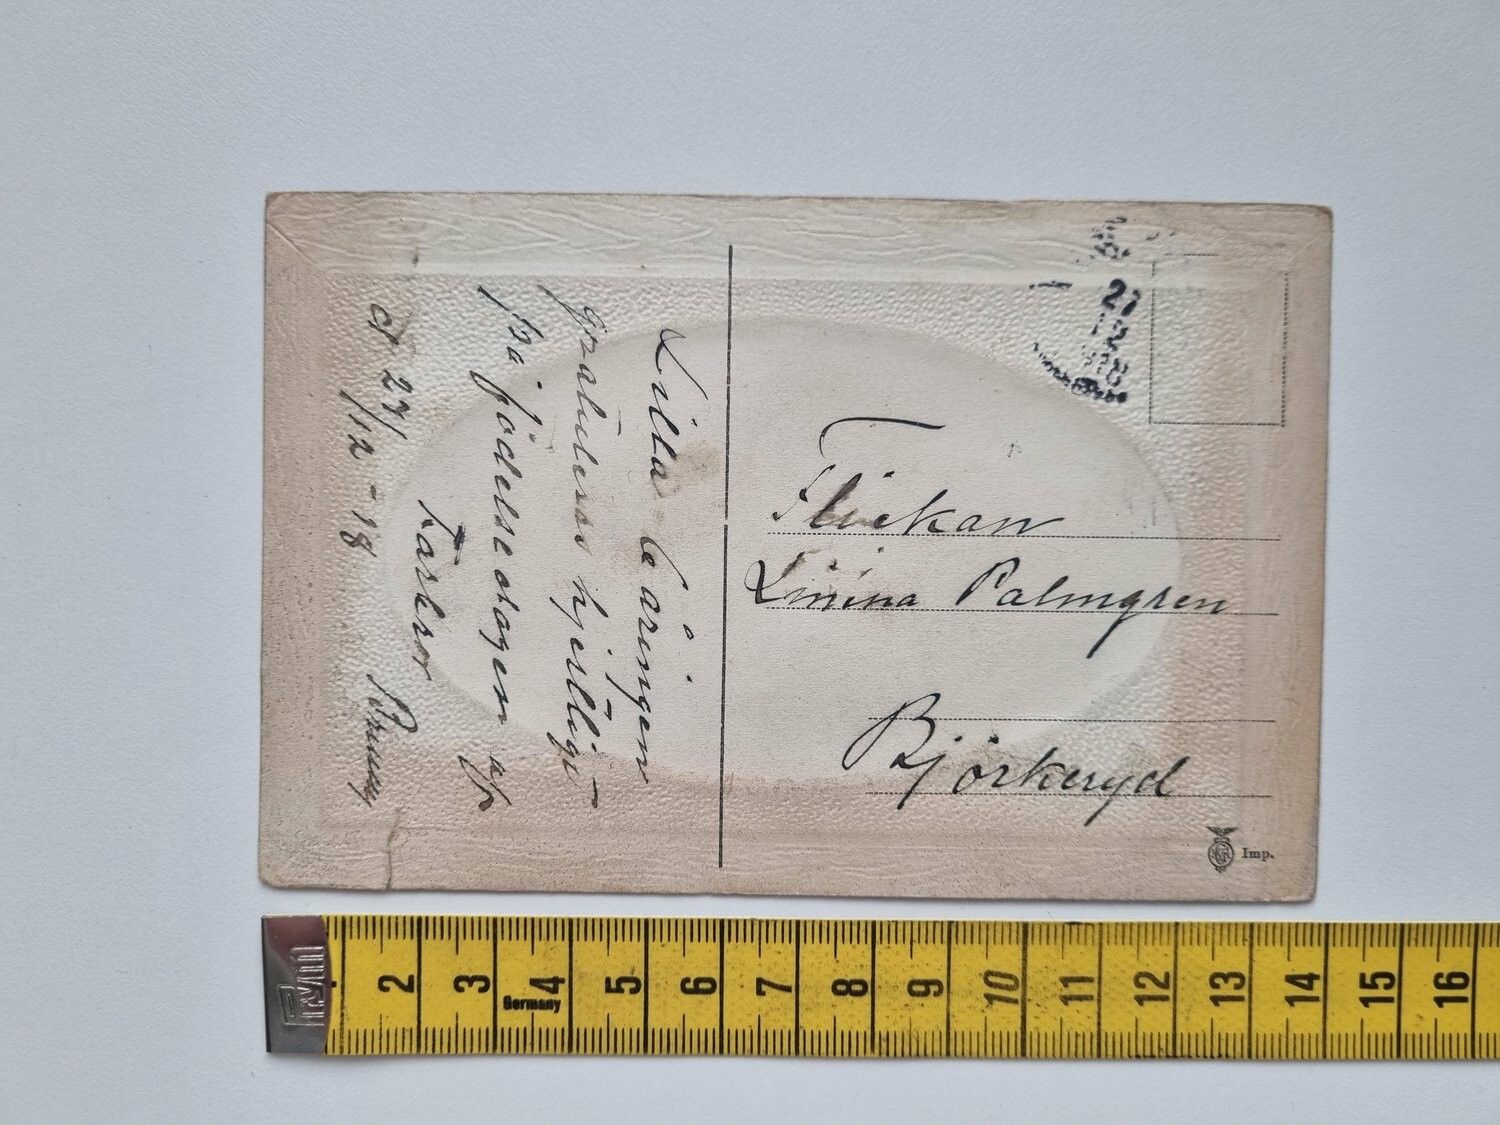 Lilla 6 åringen
gratuleras hjertligt
på födelsedagen af
Farbror
d 27/12 - 18
27
Flickan
Linina Palmgren
Björkeryd
Imp.
PRYM
2 3 4 5 6 7 8 9 10 11 12 13 14 15 16
Germany